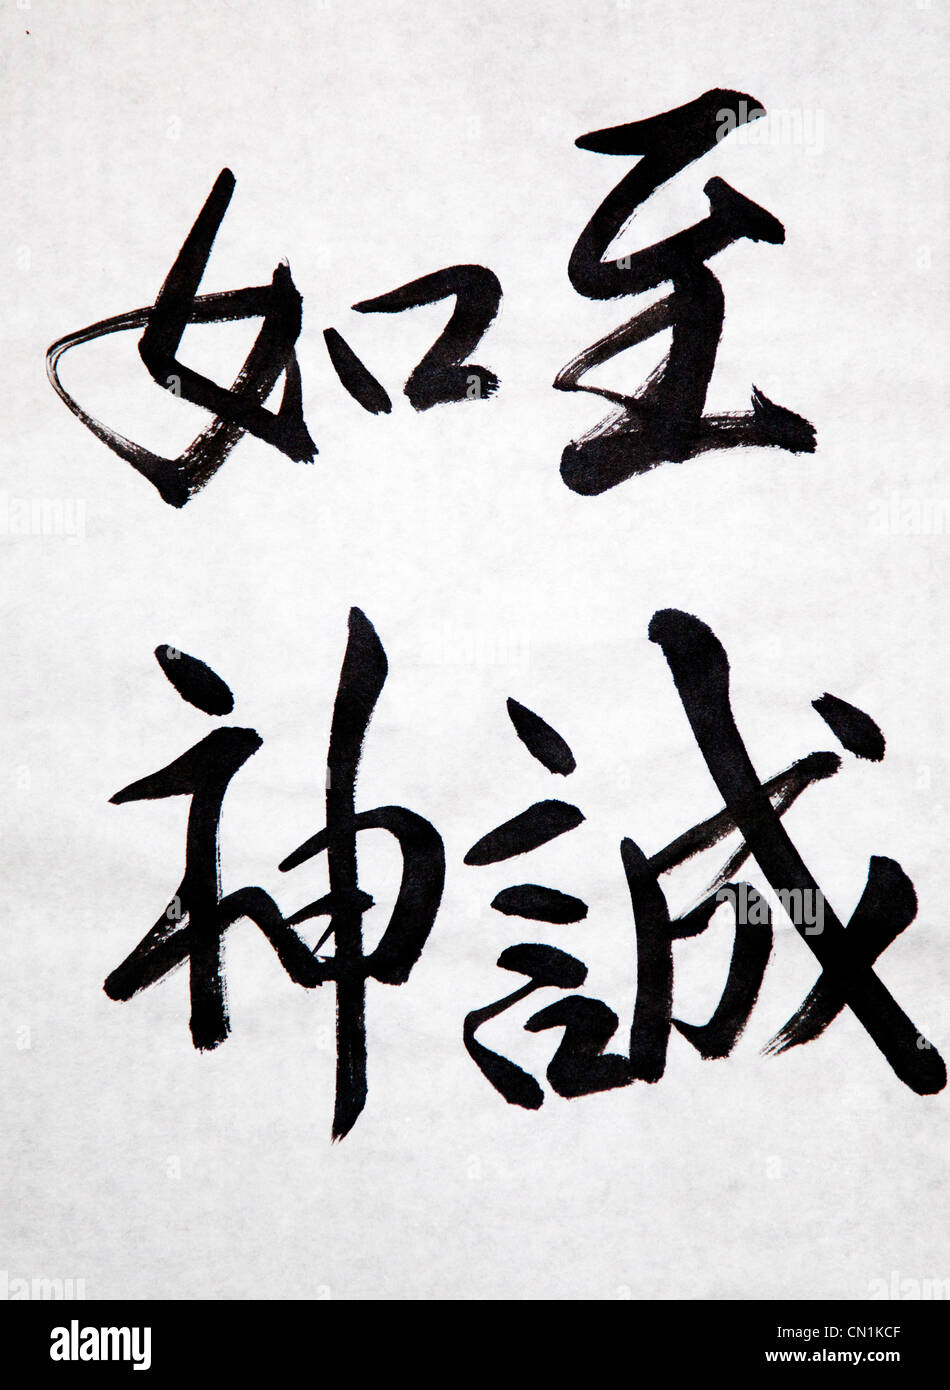 至誠
如神
alamy
Image ID: CN1KCF
www.alamy.com